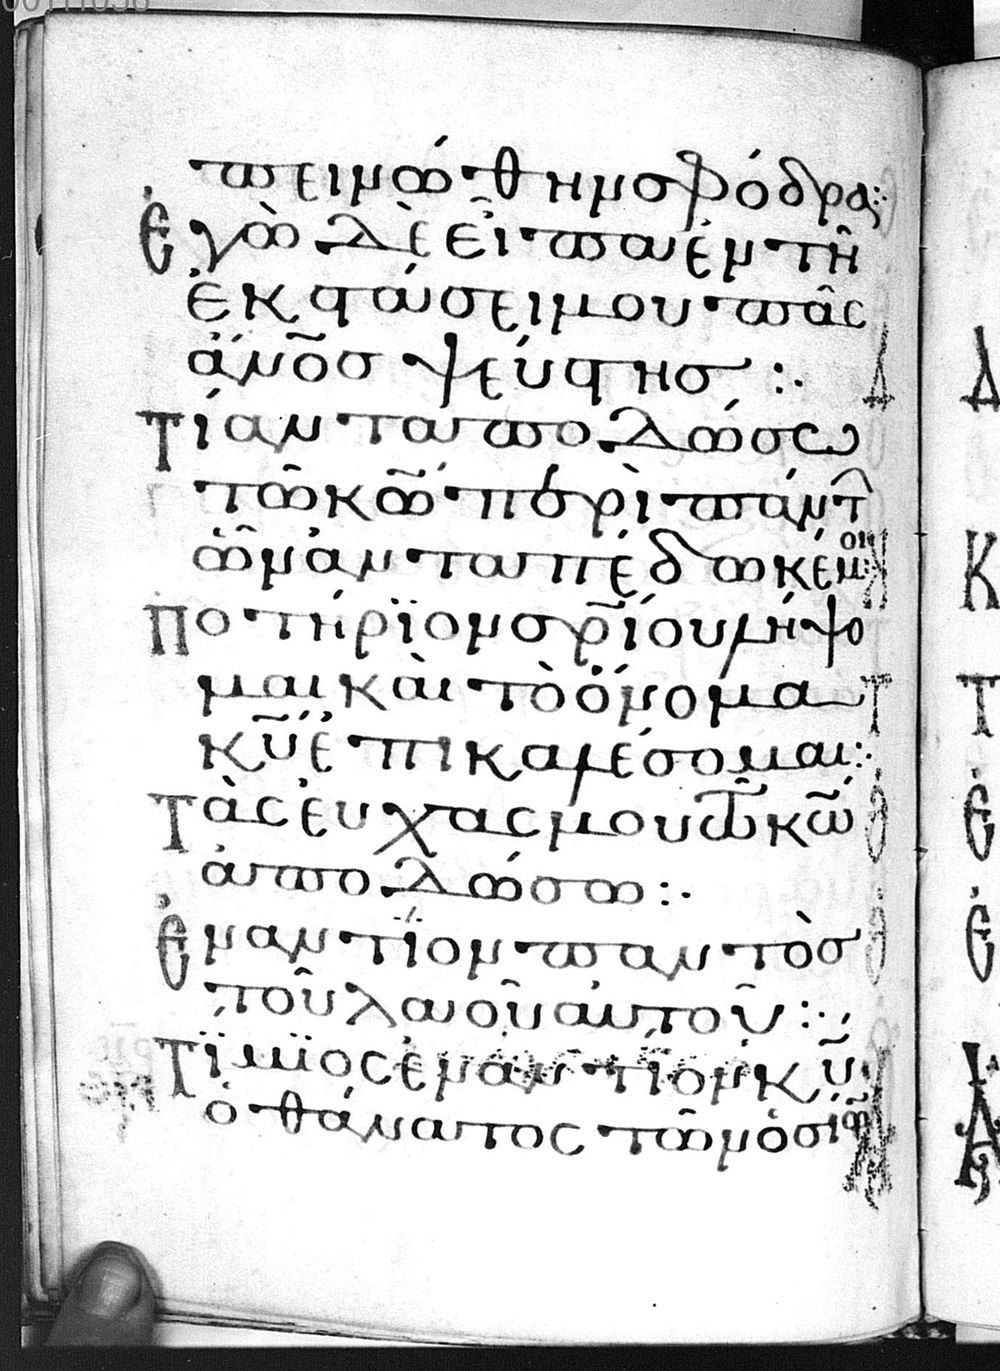 πεινώθην σφόδρα:
Ἐγὼ δὲ εἶπα ἐν τῆ
ἐκστάσει μου· πᾶς
ἄνο̅σ ψεύστησ :·
Τί ἀνταποδώσω
τῶ κω̅ περὶ πάντ
ὧν ἀνταπέδωκέν μοι:
Ποτήριον σρ̅ίου λήψο
μαι καὶ τὸ ὄνομα
κυ̅ ἐπικαλέσομαι:·
Τὰς ευχας μου τῶ κω̅
ἀποδώσω :·
Ἐναντίον παντὸσ
τοῦ λαοῦ αὐτοῦ :·
Τίμϊος ἐναντίον κυ̅
ὁ θάνατος τῶν ὁσίων